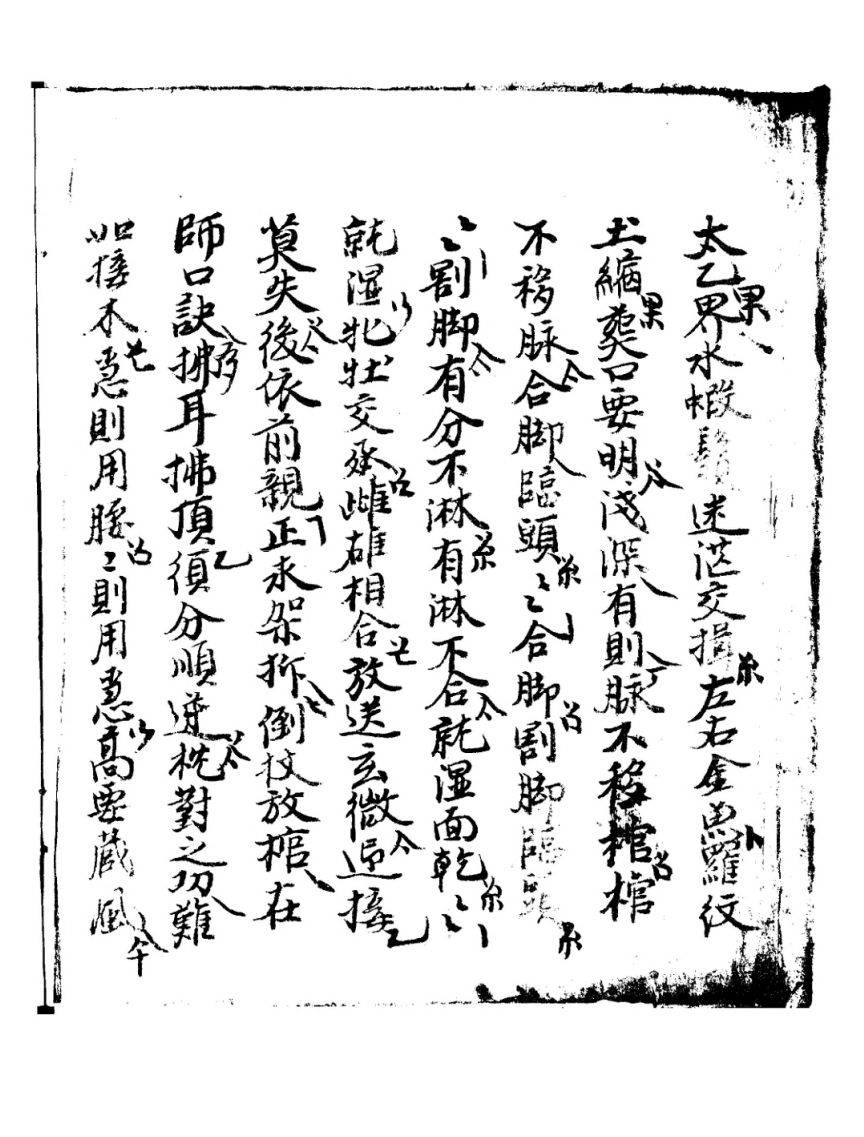 太乙界水蝦鬚迷茫交揖左右金魚羅紋
土縮葬口要明淺深有則脉不移棺棺
不移脉合脚臨頭〻〻合脚割脚臨頭
〻〻割脚有分不淋有淋不合就湿面乾〻〻
就湿牝牡交承雌雄相合放送玄微迎接
莫失後依前親正求架折倒杖放棺在
師口訣拂耳拂頂須分順逆枕對之功難
如接木急則用緩〻則用急高要蔵風